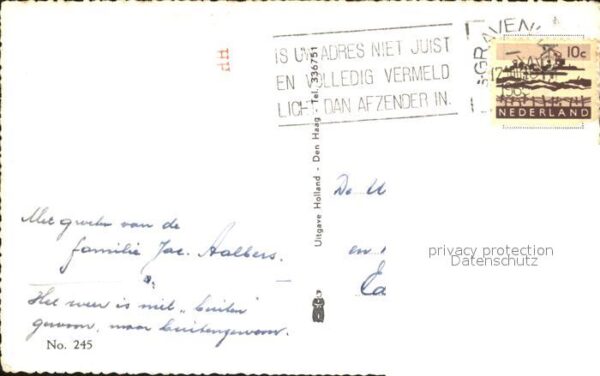 HP
IS UW ADRES NIET JUIST
EN VOLLEDIG VERMELD
LICHT DAN AFZENDER IN.
10c
NEDERLAND
Uitgave Holland - Den Haag - Tel. 336751
De
en
privacy protection
Datenschutz
Met groeten van de
familie Jac. Aalbers.
Het weer is niet „buiten"
gewoon, maar buitengewoon.
No. 245